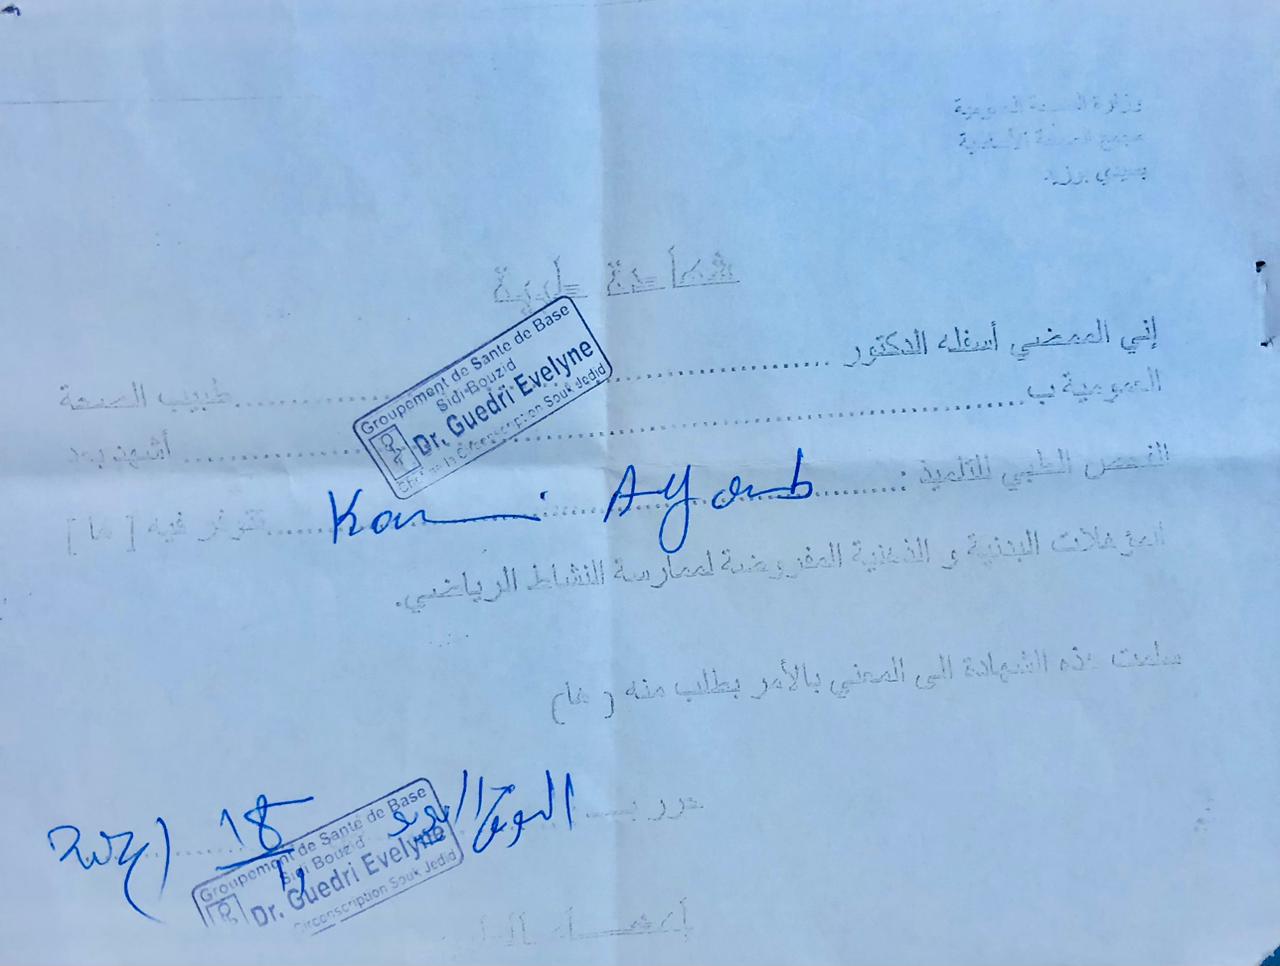 وزارة الصحة العمومية
مجمع الصحة الأساسية
بسيدي بوزيد
شهادة طبية
إني الممضي أسفله الدكتور .................... طبيب الصحة
العمومية ب .................... أشهد بعد
الفحص الطبي للتلميذ : Karmi Ayoub تتوفر فيه [ ها ]
المؤهلات البدنية و الذهنية المفروضة لممارسة النشاط الرياضي.
سلمت هذه الشهادة الى المعني بالأمر بطلب منه ( ها )
حرر ب
إمضاء الطبيب
Groupement de Santé de Base
Sidi-Bouzid
Dr. Guedri Evelyne
Circonscription Souk Jedid
Groupement de Santé de Base
Sidi Bouzid
Dr. Guedri Evelyne
Circonscription Souk Jedid